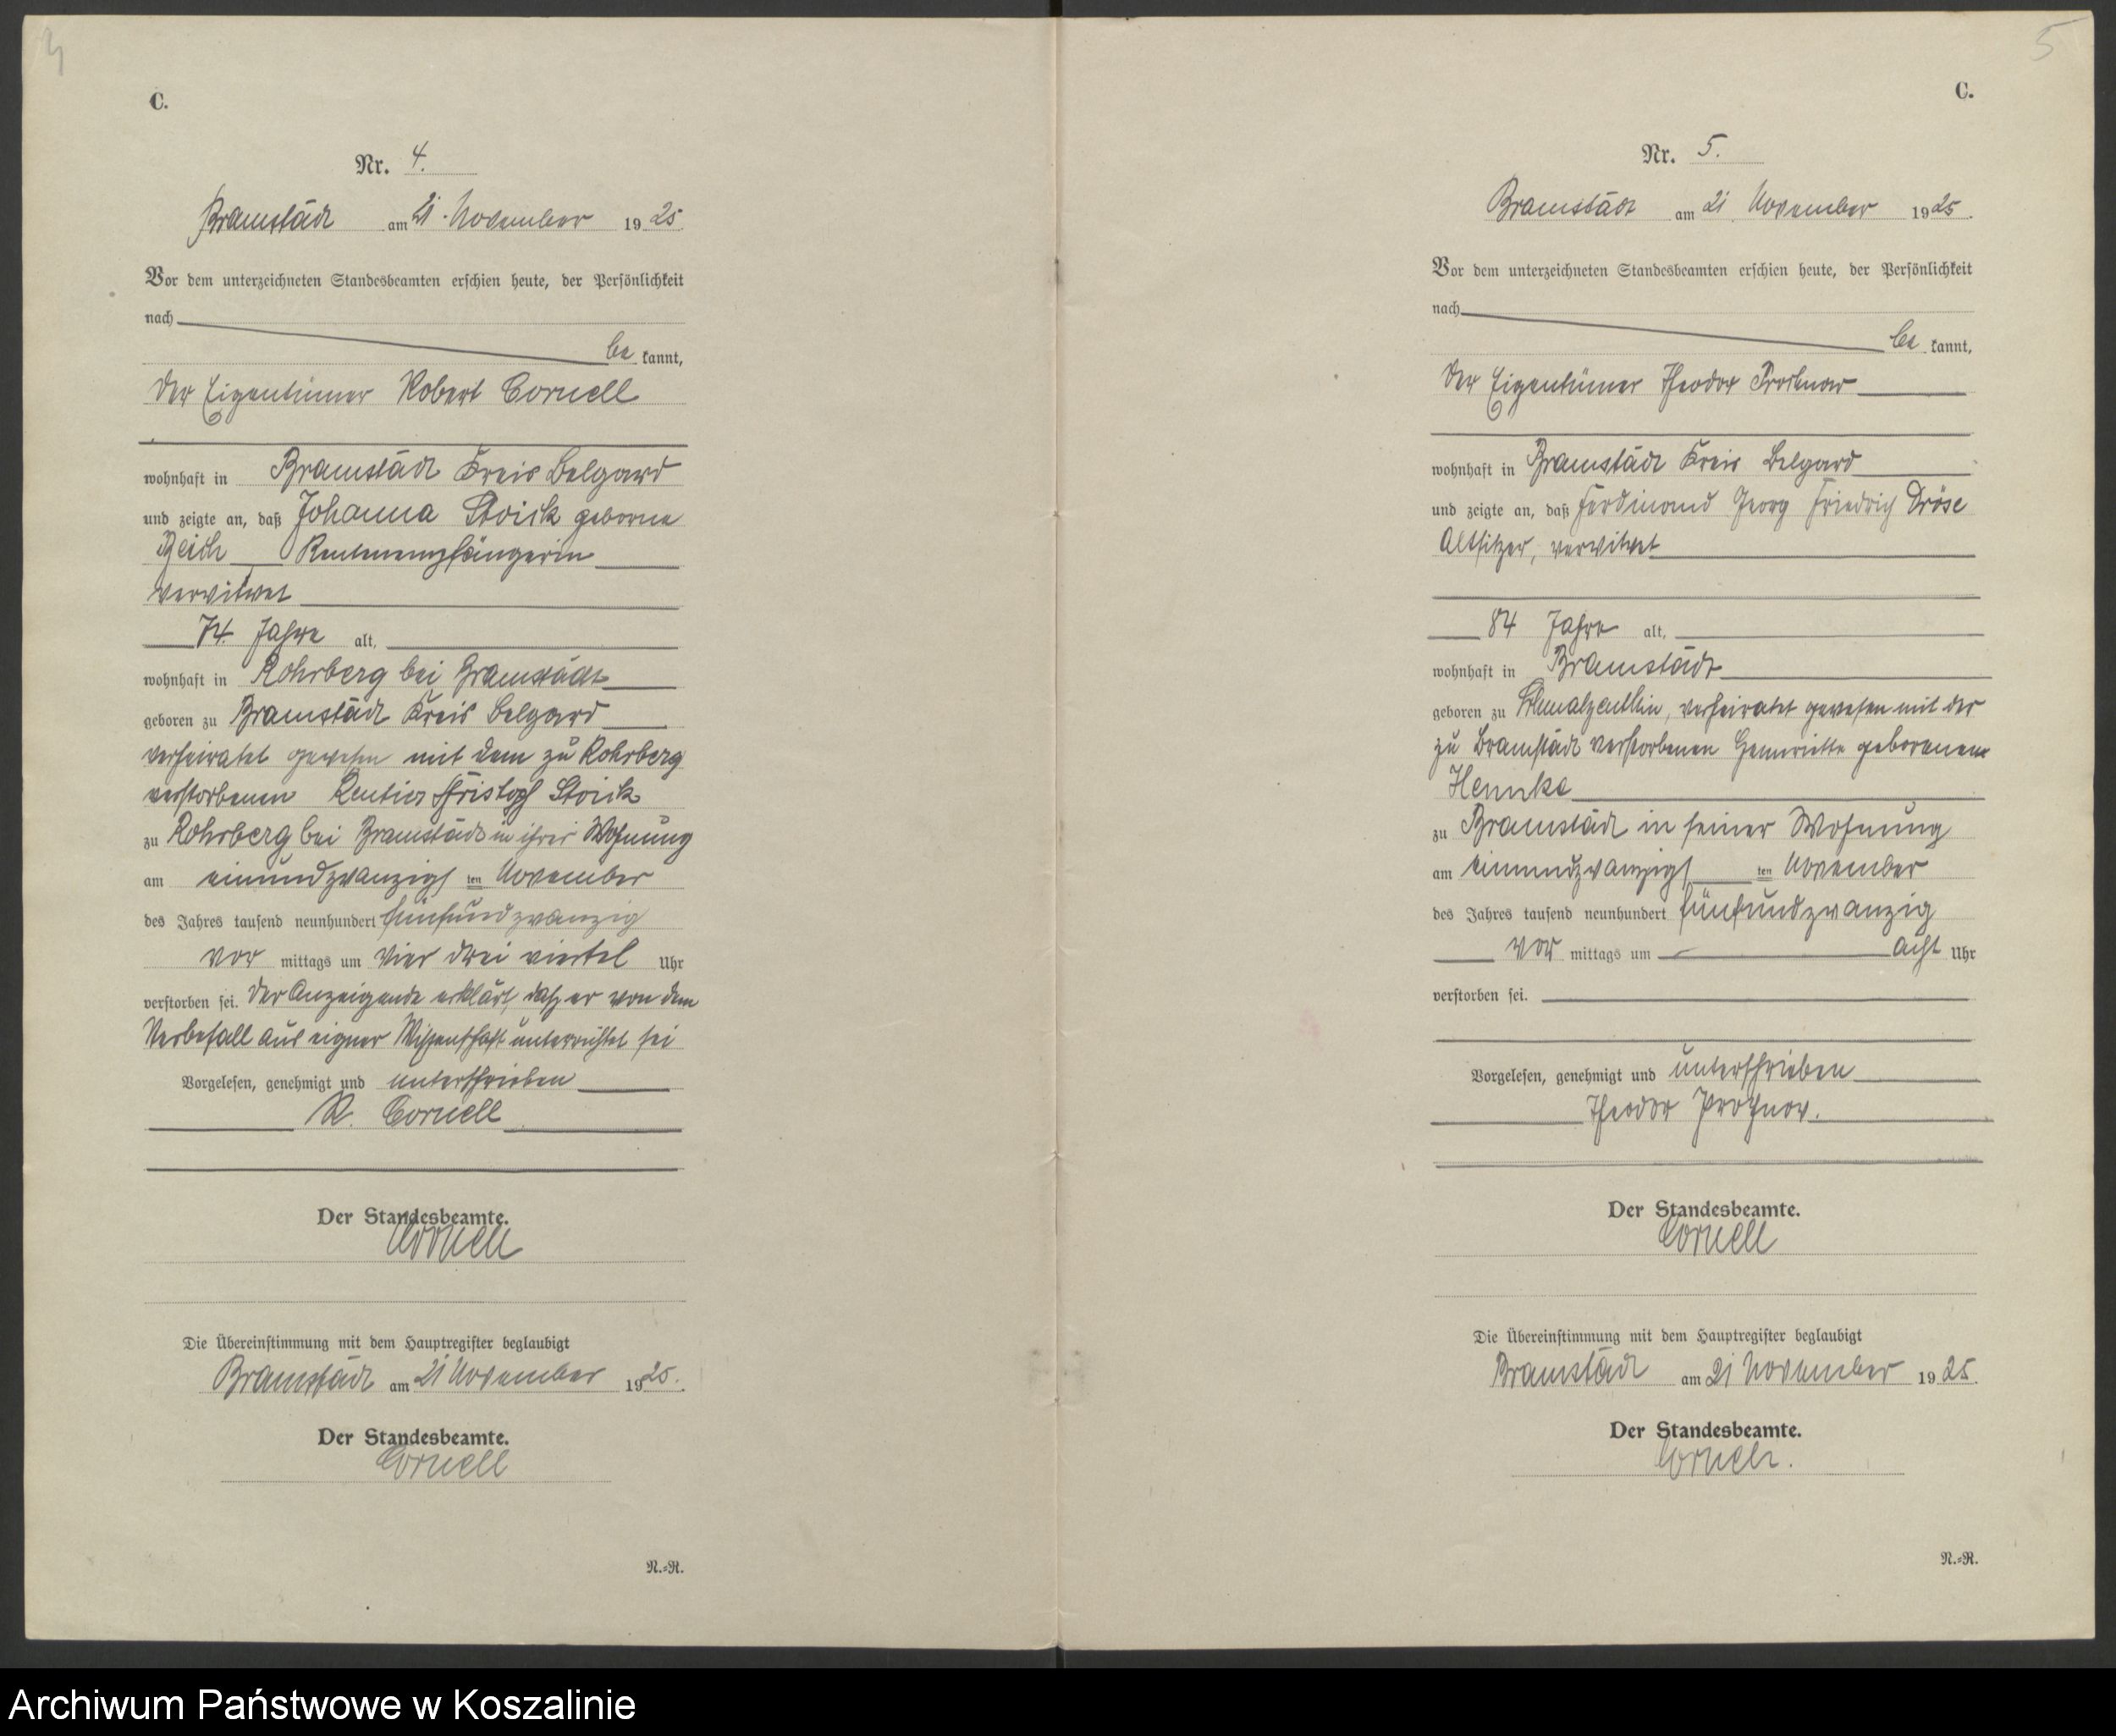 4
C.
Nr. 4.
Bramstädt am 21. November 1925.
Vor dem unterzeichneten Standesbeamten erschien heute, der Persönlichkeit
nach
be kannt,
der Eigentümer Robert Cornell
wohnhaft in Bramstädt Kreis Belgard
und zeigte an, daß Johanna Stoick geborne
Reich Rentenempfängerin
verwitwet
74 Jahre alt,
wohnhaft in Rohrberg bei Bramstädt
geboren zu Bramstädt Kreis Belgard
verheiratet gewesen mit dem zu Rohrberg
verstorbenen Rentier Christoph Stoick
zu Rohrberg bei Bramstädt in ihrer Wohnung
am einundzwanzigs ten November
des Jahres tausend neunhundert fünfundzwanzig
vor mittags um vier drei viertel Uhr
verstorben sei. Der Anzeigende erklärt, daß er von dem
Sterbefall aus eigner Wissenschaft unterrichtet sei
Vorgelesen, genehmigt und unterschrieben
R. Cornell
Der Standesbeamte.
Cornell
Die Übereinstimmung mit dem Hauptregister beglaubigt
Bramstädt am 21 November 1925.
Der Standesbeamte.
Cornell
N.=R.
5
C.
Nr. 5.
Bramstädt am 21. November 1925.
Vor dem unterzeichneten Standesbeamten erschien heute, der Persönlichkeit
nach
be kannt,
der Eigentümer Theodor Prochnow
wohnhaft in Bramstädt Kreis Belgard
und zeigte an, daß Ferdinand Georg Friedrich Dröse
Altsitzer, verwitwet
84 Jahre alt,
wohnhaft in Bramstädt
geboren zu Schmalzenthin, verheiratet gewesen mit der
zu Bramstädt verstorbenen Henriette geborenen
Hennke
zu Bramstädt in seiner Wohnung
am einundzwanzigs ten November
des Jahres tausend neunhundert fünfundzwanzig
vor mittags um acht Uhr
verstorben sei.
Vorgelesen, genehmigt und unterschrieben
Theodor Prochnow.
Der Standesbeamte.
Cornell
Die Übereinstimmung mit dem Hauptregister beglaubigt
Bramstädt am 21 November 1925.
Der Standesbeamte.
Cornell.
N.=R.
Archiwum Państwowe w Koszalinie